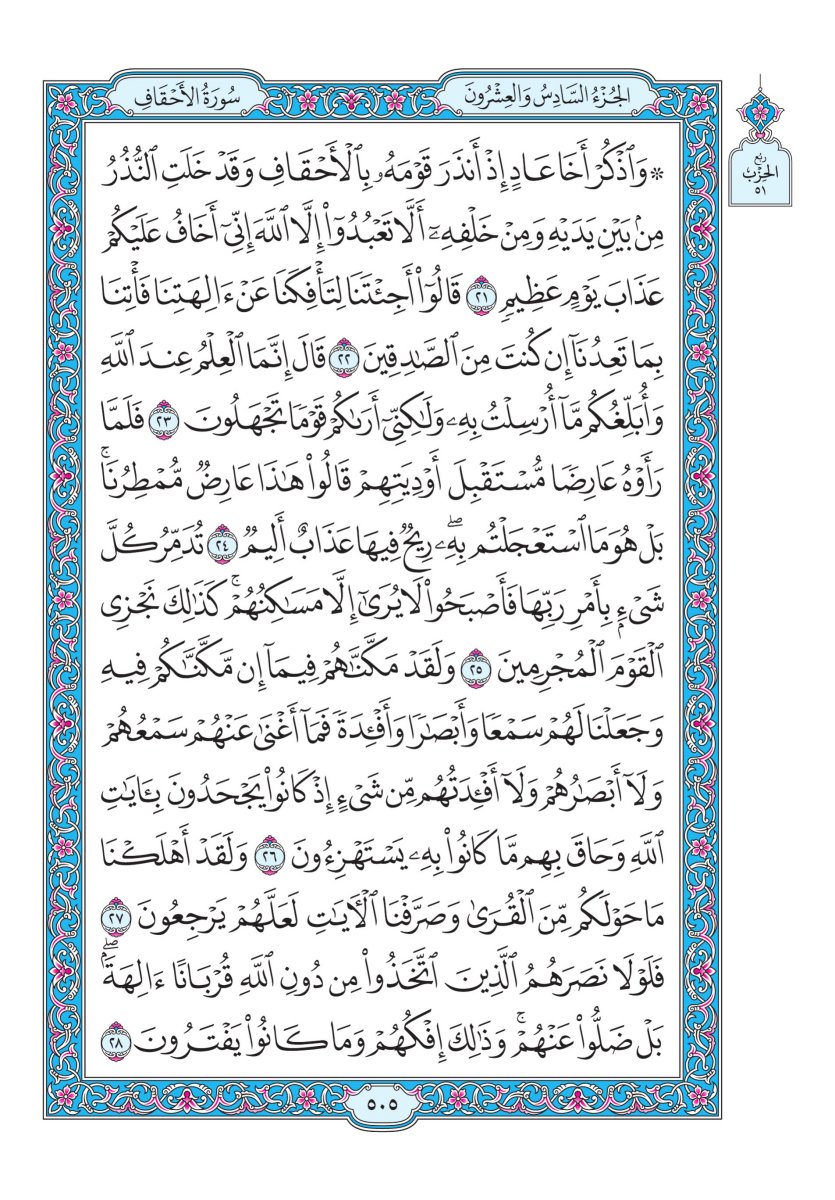 الجُزْءُ السَّادِسُ وَالعِشْرُونَ
سُورَةُ الأَحْقَافِ
ربع
الحِزْب
٥١
۞ وَٱذْكُرْ أَخَا عَادٍ إِذْ أَنذَرَ قَوْمَهُۥ بِٱلْأَحْقَافِ وَقَدْ خَلَتِ ٱلنُّذُرُ
مِنۢ بَيْنِ يَدَيْهِ وَمِنْ خَلْفِهِۦٓ أَلَّا تَعْبُدُوٓا۟ إِلَّا ٱللَّهَ إِنِّىٓ أَخَافُ عَلَيْكُمْ
عَذَابَ يَوْمٍ عَظِيمٍ ٢١ قَالُوٓا۟ أَجِئْتَنَا لِتَأْفِكَنَا عَنْ ءَالِهَتِنَا فَأْتِنَا
بِمَا تَعِدُنَآ إِن كُنتَ مِنَ ٱلصَّـٰدِقِينَ ٢٢ قَالَ إِنَّمَا ٱلْعِلْمُ عِندَ ٱللَّهِ
وَأُبَلِّغُكُم مَّآ أُرْسِلْتُ بِهِۦ وَلَـٰكِنِّىٓ أَرَىٰكُمْ قَوْمًا تَجْهَلُونَ ٢٣ فَلَمَّا
رَأَوْهُ عَارِضًا مُّسْتَقْبِلَ أَوْدِيَتِهِمْ قَالُوا۟ هَـٰذَا عَارِضٌ مُّمْطِرُنَا ۚ
بَلْ هُوَ مَا ٱسْتَعْجَلْتُم بِهِۦ ۖ رِيحٌ فِيهَا عَذَابٌ أَلِيمٌ ٢٤ تُدَمِّرُ كُلَّ
شَىْءٍۭ بِأَمْرِ رَبِّهَا فَأَصْبَحُوا۟ لَا يُرَىٰٓ إِلَّا مَسَـٰكِنُهُمْ ۚ كَذَٰلِكَ نَجْزِى
ٱلْقَوْمَ ٱلْمُجْرِمِينَ ٢٥ وَلَقَدْ مَكَّنَّـٰهُمْ فِيمَآ إِن مَّكَّنَّـٰكُمْ فِيهِ
وَجَعَلْنَا لَهُمْ سَمْعًا وَأَبْصَـٰرًا وَأَفْـِٔدَةً فَمَآ أَغْنَىٰ عَنْهُمْ سَمْعُهُمْ
وَلَآ أَبْصَـٰرُهُمْ وَلَآ أَفْـِٔدَتُهُم مِّن شَىْءٍ إِذْ كَانُوا۟ يَجْحَدُونَ بِـَٔايَـٰتِ
ٱللَّهِ وَحَاقَ بِهِم مَّا كَانُوا۟ بِهِۦ يَسْتَهْزِءُونَ ٢٦ وَلَقَدْ أَهْلَكْنَا
مَا حَوْلَكُم مِّنَ ٱلْقُرَىٰ وَصَرَّفْنَا ٱلْـَٔايَـٰتِ لَعَلَّهُمْ يَرْجِعُونَ ٢٧
فَلَوْلَا نَصَرَهُمُ ٱلَّذِينَ ٱتَّخَذُوا۟ مِن دُونِ ٱللَّهِ قُرْبَانًا ءَالِهَةًۢ ۖ
بَلْ ضَلُّوا۟ عَنْهُمْ ۚ وَذَٰلِكَ إِفْكُهُمْ وَمَا كَانُوا۟ يَفْتَرُونَ ٢٨
٥٠٥